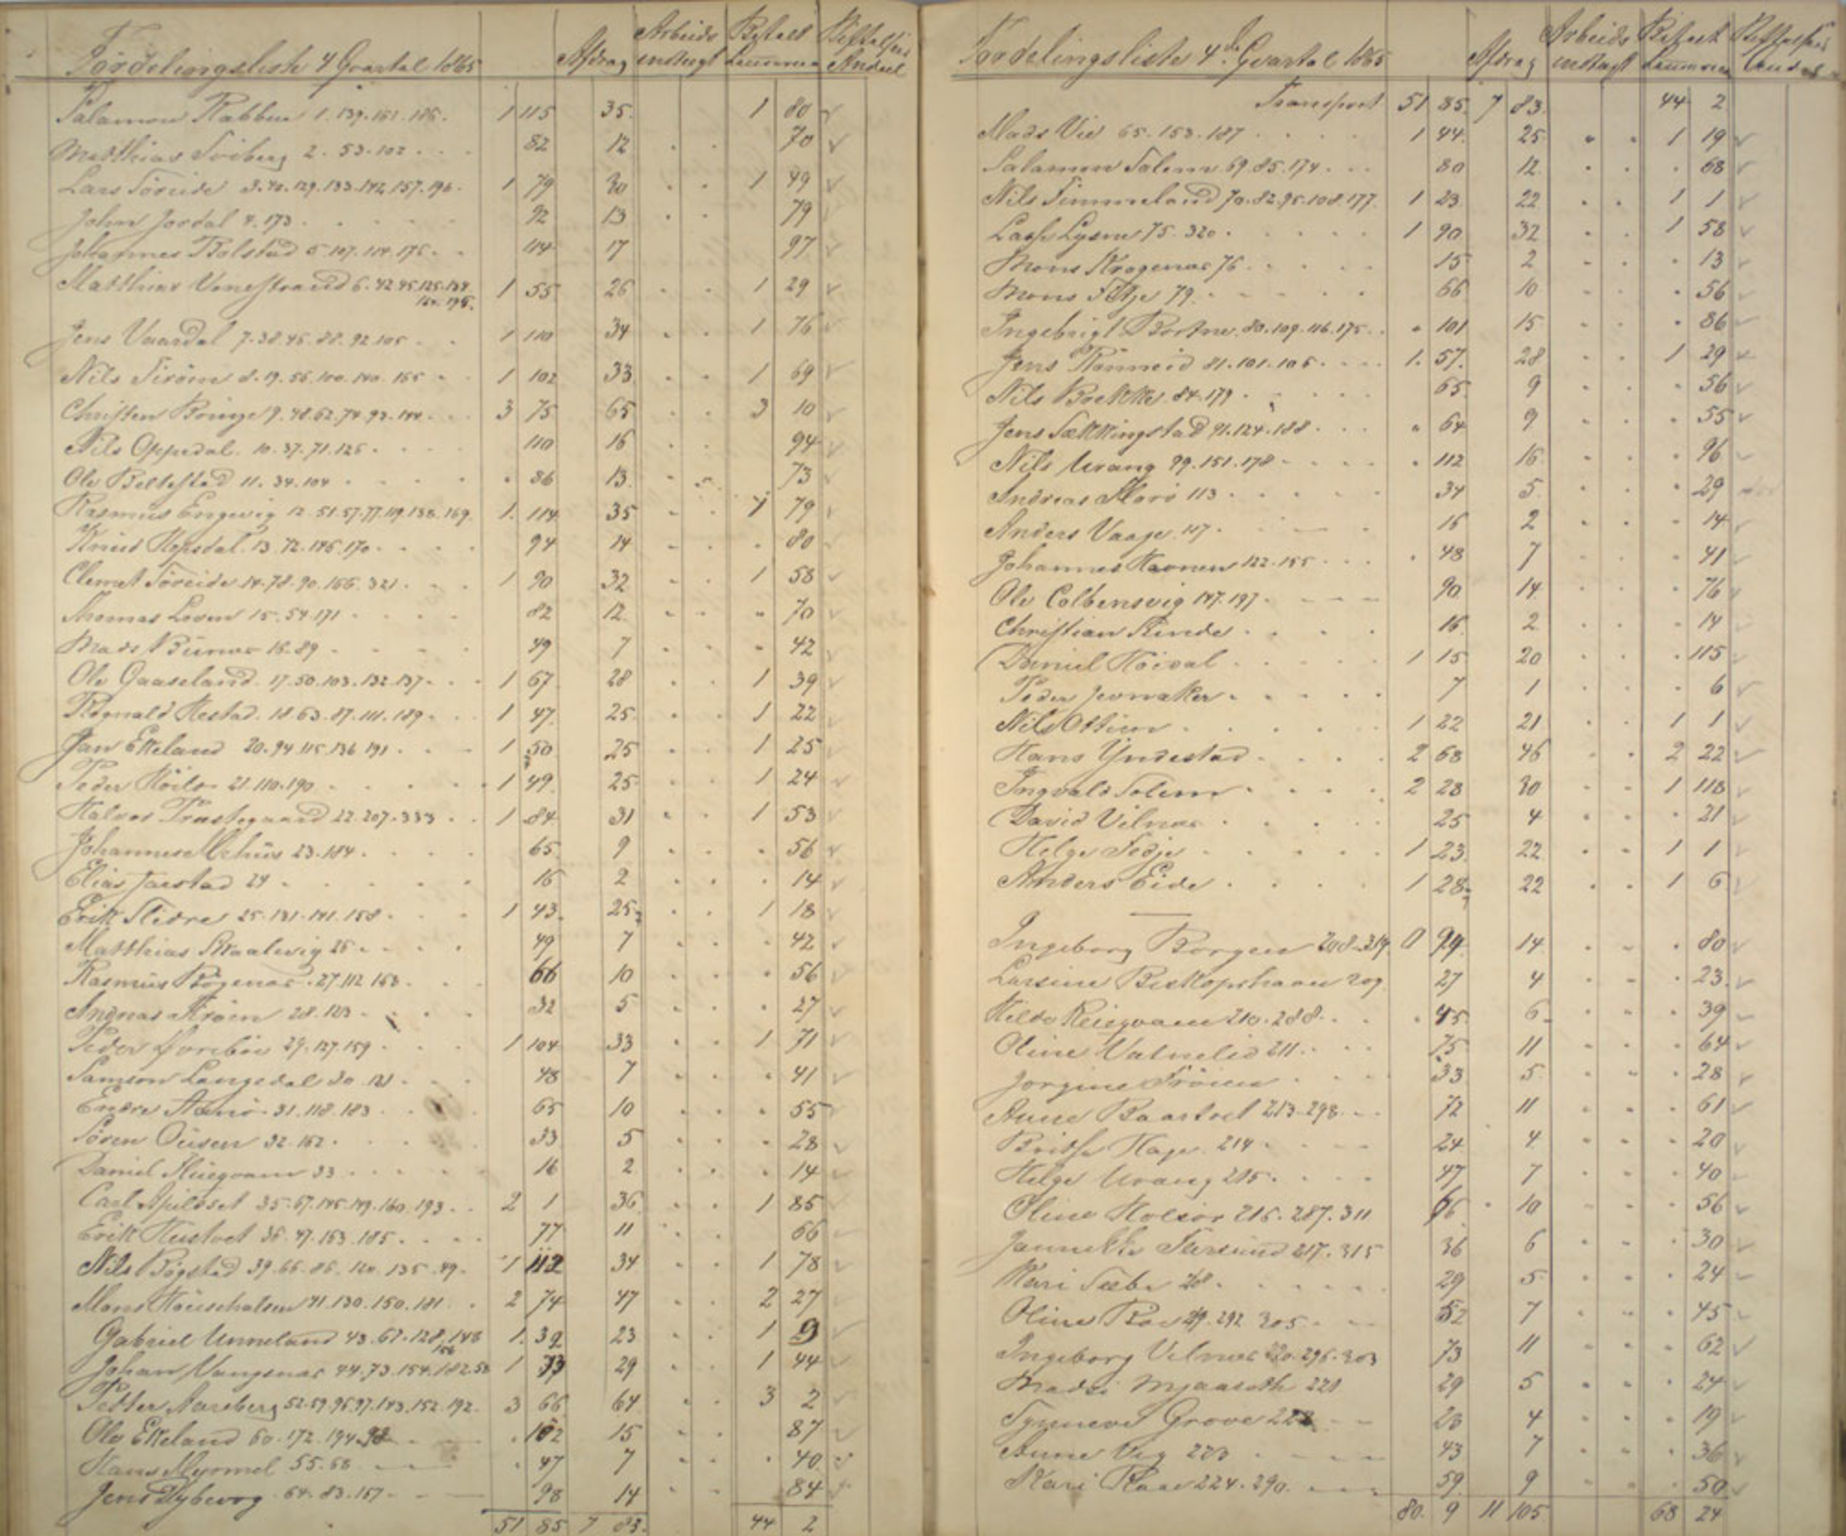 Fordelingsliste 4 Qvartal 1865 Afdrag Arbeids indtægt Betalt
Salamon Rabben 1. 139. 161. 186. 1 115 35. 1 80
Matthias Soiberg 2. 53. 102 82 12 70
Lars Söreide 3. 40. 129. 133. 142. 157. 196. 1 79 30 1 49
John Jordal 4. 173 92 13 79
Johannes Bolstad 5. 107. 114. 175 114 17 97
Matthias Vonestrand 6. 42. 45. 125. 134 1 55 26 1 29
164. 195.
Jens Vaardal 7. 38. 46. 88. 92. 105 1 110 34 1 76
Nils Ström 8. 19. 56. 100. 140. 165 1 102 33 1 69
Christen Bringe 9. 48. 62. 74. 93. 144 3 75 65 3 10
Nils Oppedal. 10. 37. 71. 126 110 16 94
Ole Beltestad 11. 34. 104 86 13 73
Rasmus Engevig 12. 51. 57. 77. 119. 138. 169. 1 114 35 1 79
Knud Hopsdal. 13. 72. 146. 170 94 14 80
Clemet Söreide 14. 78. 90. 166. 321 1 90 32 1 58
Thomas Loven 15. 54. 171 82 12 70
Mads Bünæs 16. 89 49 7 42
Ole Gaaseland. 17. 50. 103. 132. 137 1 67 28 1 39
Rognald Hestad. 18. 63. 87. 111. 189 1 47 25 1 22
Jan Ekeland 20. 94. 115. 136 191 1 50 25 1 25
Peder Höilo 21. 110. 190 1 49 25 1 24
Halvor Træstegaard 22. 207. 333 1 84 31 1 53
Johannes Mehus 23. 184 65 9 56
Elias Jarstad 24 16 2 14
Erik Slidre 25. 131. 141. 158 1 43 25 1 18
Matthias Skaalevig 26 49 7 42
Rasmus Bögenæs. 27. 112. 163 66 10 56
Andreas Ström 28. 123 32 5 27
Peder Övrebö 29. 127. 159 1 104 33 1 71
Samson Langedal 30. 121 48 7 41
Endre Askö 31. 118. 183 65 10 55
Sören Ousen 32. 162 33 5 28
Daniel Stuegvam 33 16 2 14
Carl Apilset 35. 67. 145. 149. 160. 193 2 1 36 1 85
Erik Hustvet 36. 47. 153. 185 77 11 66
Nils Bögstad 39. 66. 86. 120. 135. 49 1 112 34 1 78
Mons Hauschalsen 41. 130. 150. 181 2 74 47 2 27
Gabriel Unneland 43. 67. 128. 148 1. 32 23 1 9
156
Johan Vangsnæs 44. 73. 154. 182. 58 1 73 29 1 44
Petter Aareberg 52. 59. 96. 97. 143. 152. 192. 3 66 64 3 2
Ole Ekeland 60. 172. 194. 98 102 15 87
Hans Myrmel 55. 68 47 7 40
Jens Nybevog 64. 83. 167 98 14 84
51 85 7 83. 44 2
Fordelingsliste 4de Qvartal 1865 Afdrag Arbeids indtægt Betalt
Transport 51 85. 7 83. 44 2
Mads Vie 65. 153. 187 1 44 25 1 19
Salamon Solem 69. 85. 174 80 12 68
Nils Timmeland 70. 82. 95. 108. 177. 1 23 22 1 1
Lasse Lysne 75. 320 1 90 32 1 58
Mons Kragenæs 76 15 2 13
Mons Fitje 79 66 10 56
Ingebrigt Bortne. 80. 109. 116. 175 101 15 86
Jens Rönneid 81. 101. 106 1. 57. 28 1 29
Nils Boekke 84. 179 65 9 56
Jens Sækkingstad 91. 124. 188 64 9 55
Nils Urang 99. 151. 178 112 16 96
Andreas Florö 113 34 5 29
Anders Vaage 117 16 2 14
Johannes Havnen 122. 155 48 7 41
Ole Colbensvig 147. 197 90 14 76
Christian Rinde 16 2 14
Daniel Höival 1 15 20 115
Peder Jevnaker 7 1 6
Nils Ottum 1 22 21 1 1
Hans Yndestad 2 68 46 2 22
Ingvald Solem 2 28 30 1 118
David Vilnæs 25 4 21
Helge Fedje 1 23 22 1 1
Anders Eide 1 28 22 1 6
Ingeborg Borgen 208. 319. 0 94 14 80
Larsine Biskopshavn 209 27 4 23
Hilda Reiegvam 210. 288 45 6 39
Oline Vatnelid 211 75 11 64
Jorgine Fröien 33 5 28
Anne Baartvet 213. 298 72 11 61
Brithe Hage. 214 24 4 20
Helge Urang 215 47 7 40
Oline Holsör 216. 287. 311 66 10 56
Jannikke Flersund 217. 315 36 6 30
Kari Sæbe 218 29 5 24
Oline Roe 219. 292 305 52 7 45
Ingeborg Vilnæs 220. 296. 303 73 11 62
Madsi Mjaaseth 221 29 5 24
Synneve Grove 222 23 4 19
Anne Vig 223 43 7 36
Kari Raae 224. 290 59 9 50
80. 9 11 105 68 24